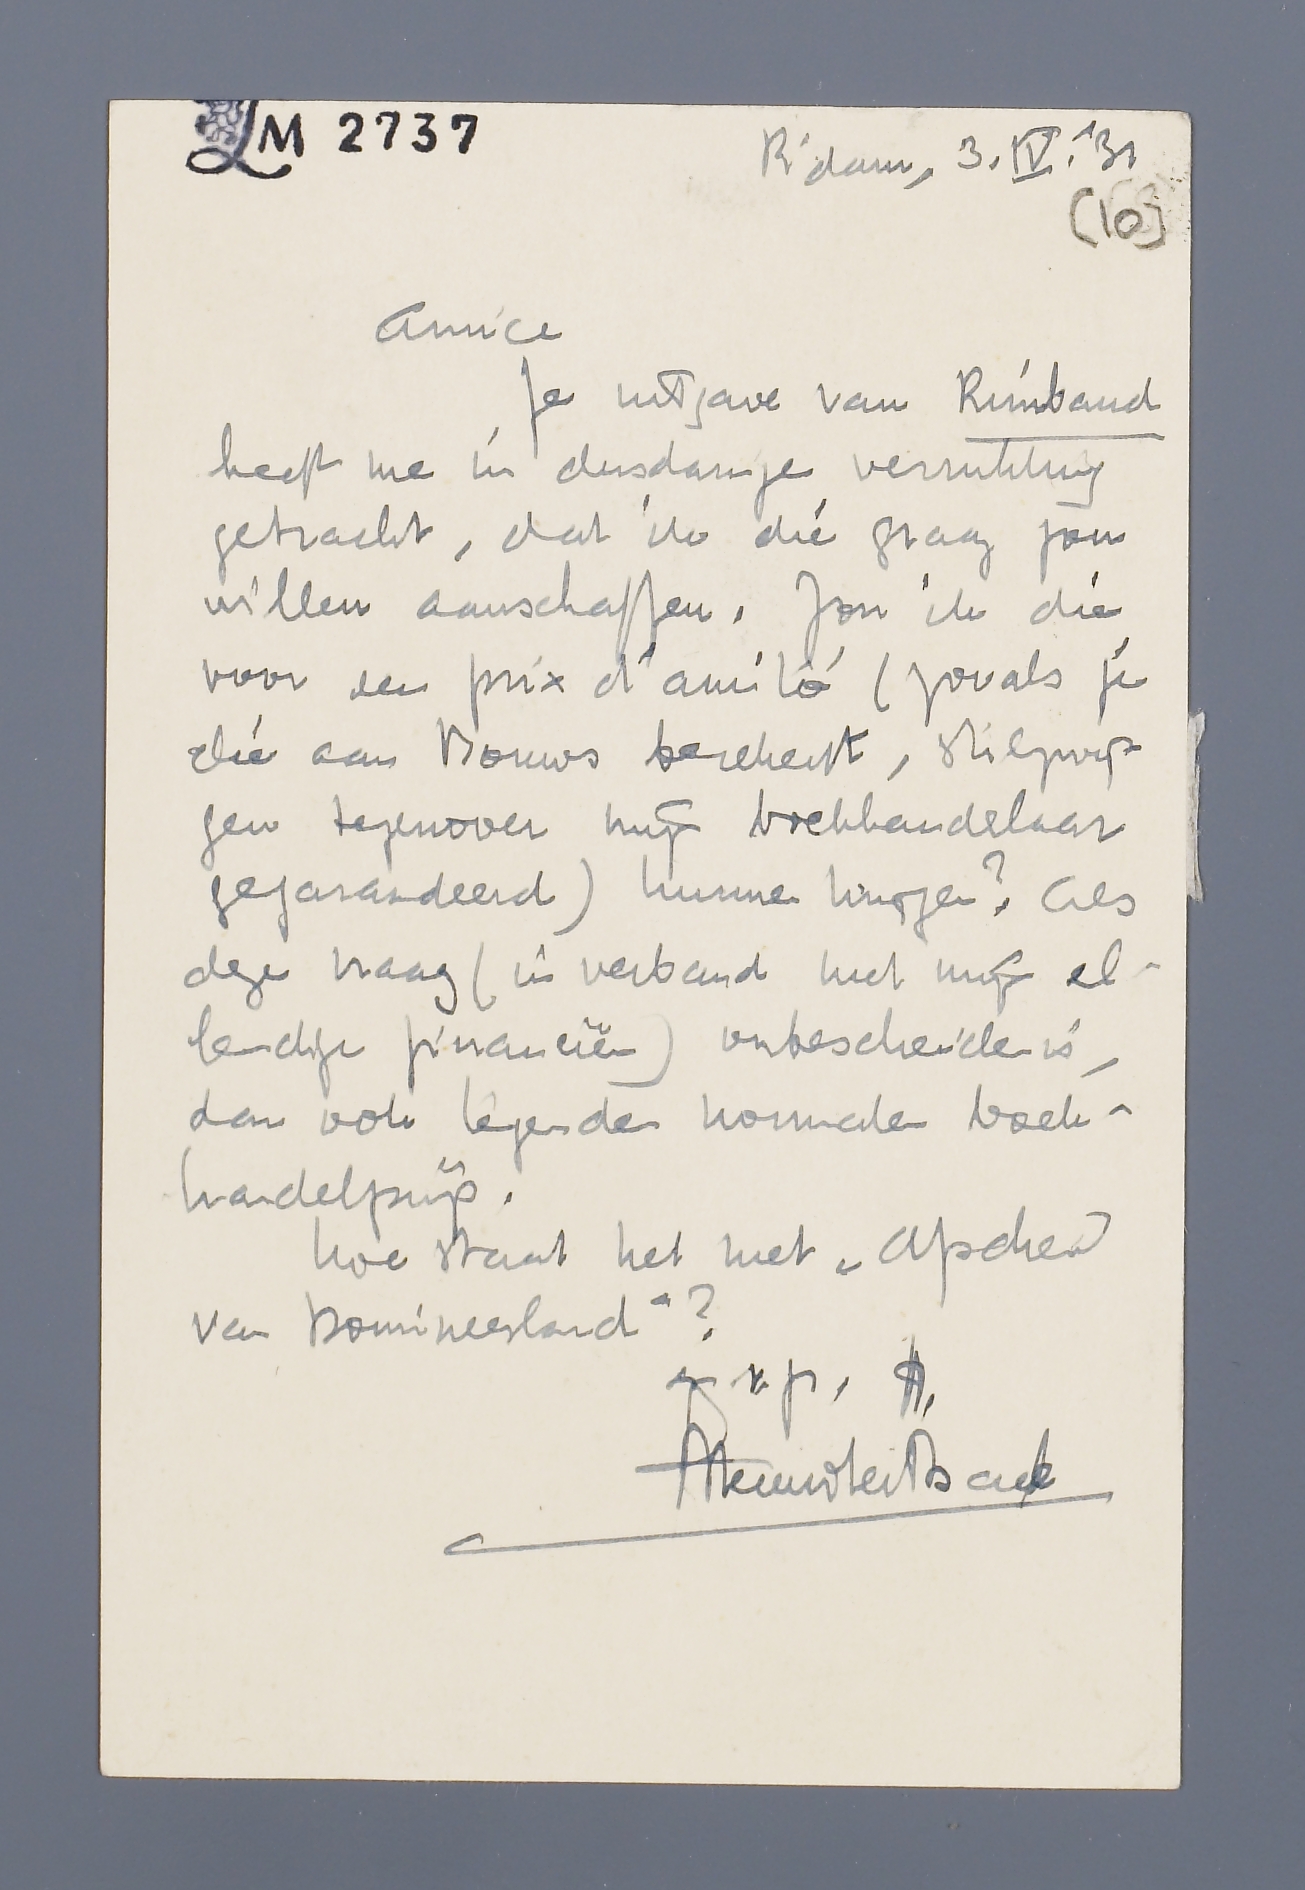 LM 2737
R'dam, 3.IV.'31
(10)
Amice
Je uitgave van Rimbaud
heeft me in dusdanige verrukking
gebracht, dat ik die graag zou
willen aanschaffen. Zou ik die
voor een prix d'amitié (zooals je
die aan Bouws berekent, stilzwij-
gen tegenover mijn boekhandelaar
gegarandeerd) kunnen krijgen? Als
deze vraag (in verband met mijn el-
lendige financiën) onbescheiden is,
dan ook tegen den normalen boek-
handelprijs.
Hoe staat het met „Afscheid
van Domineesland"?